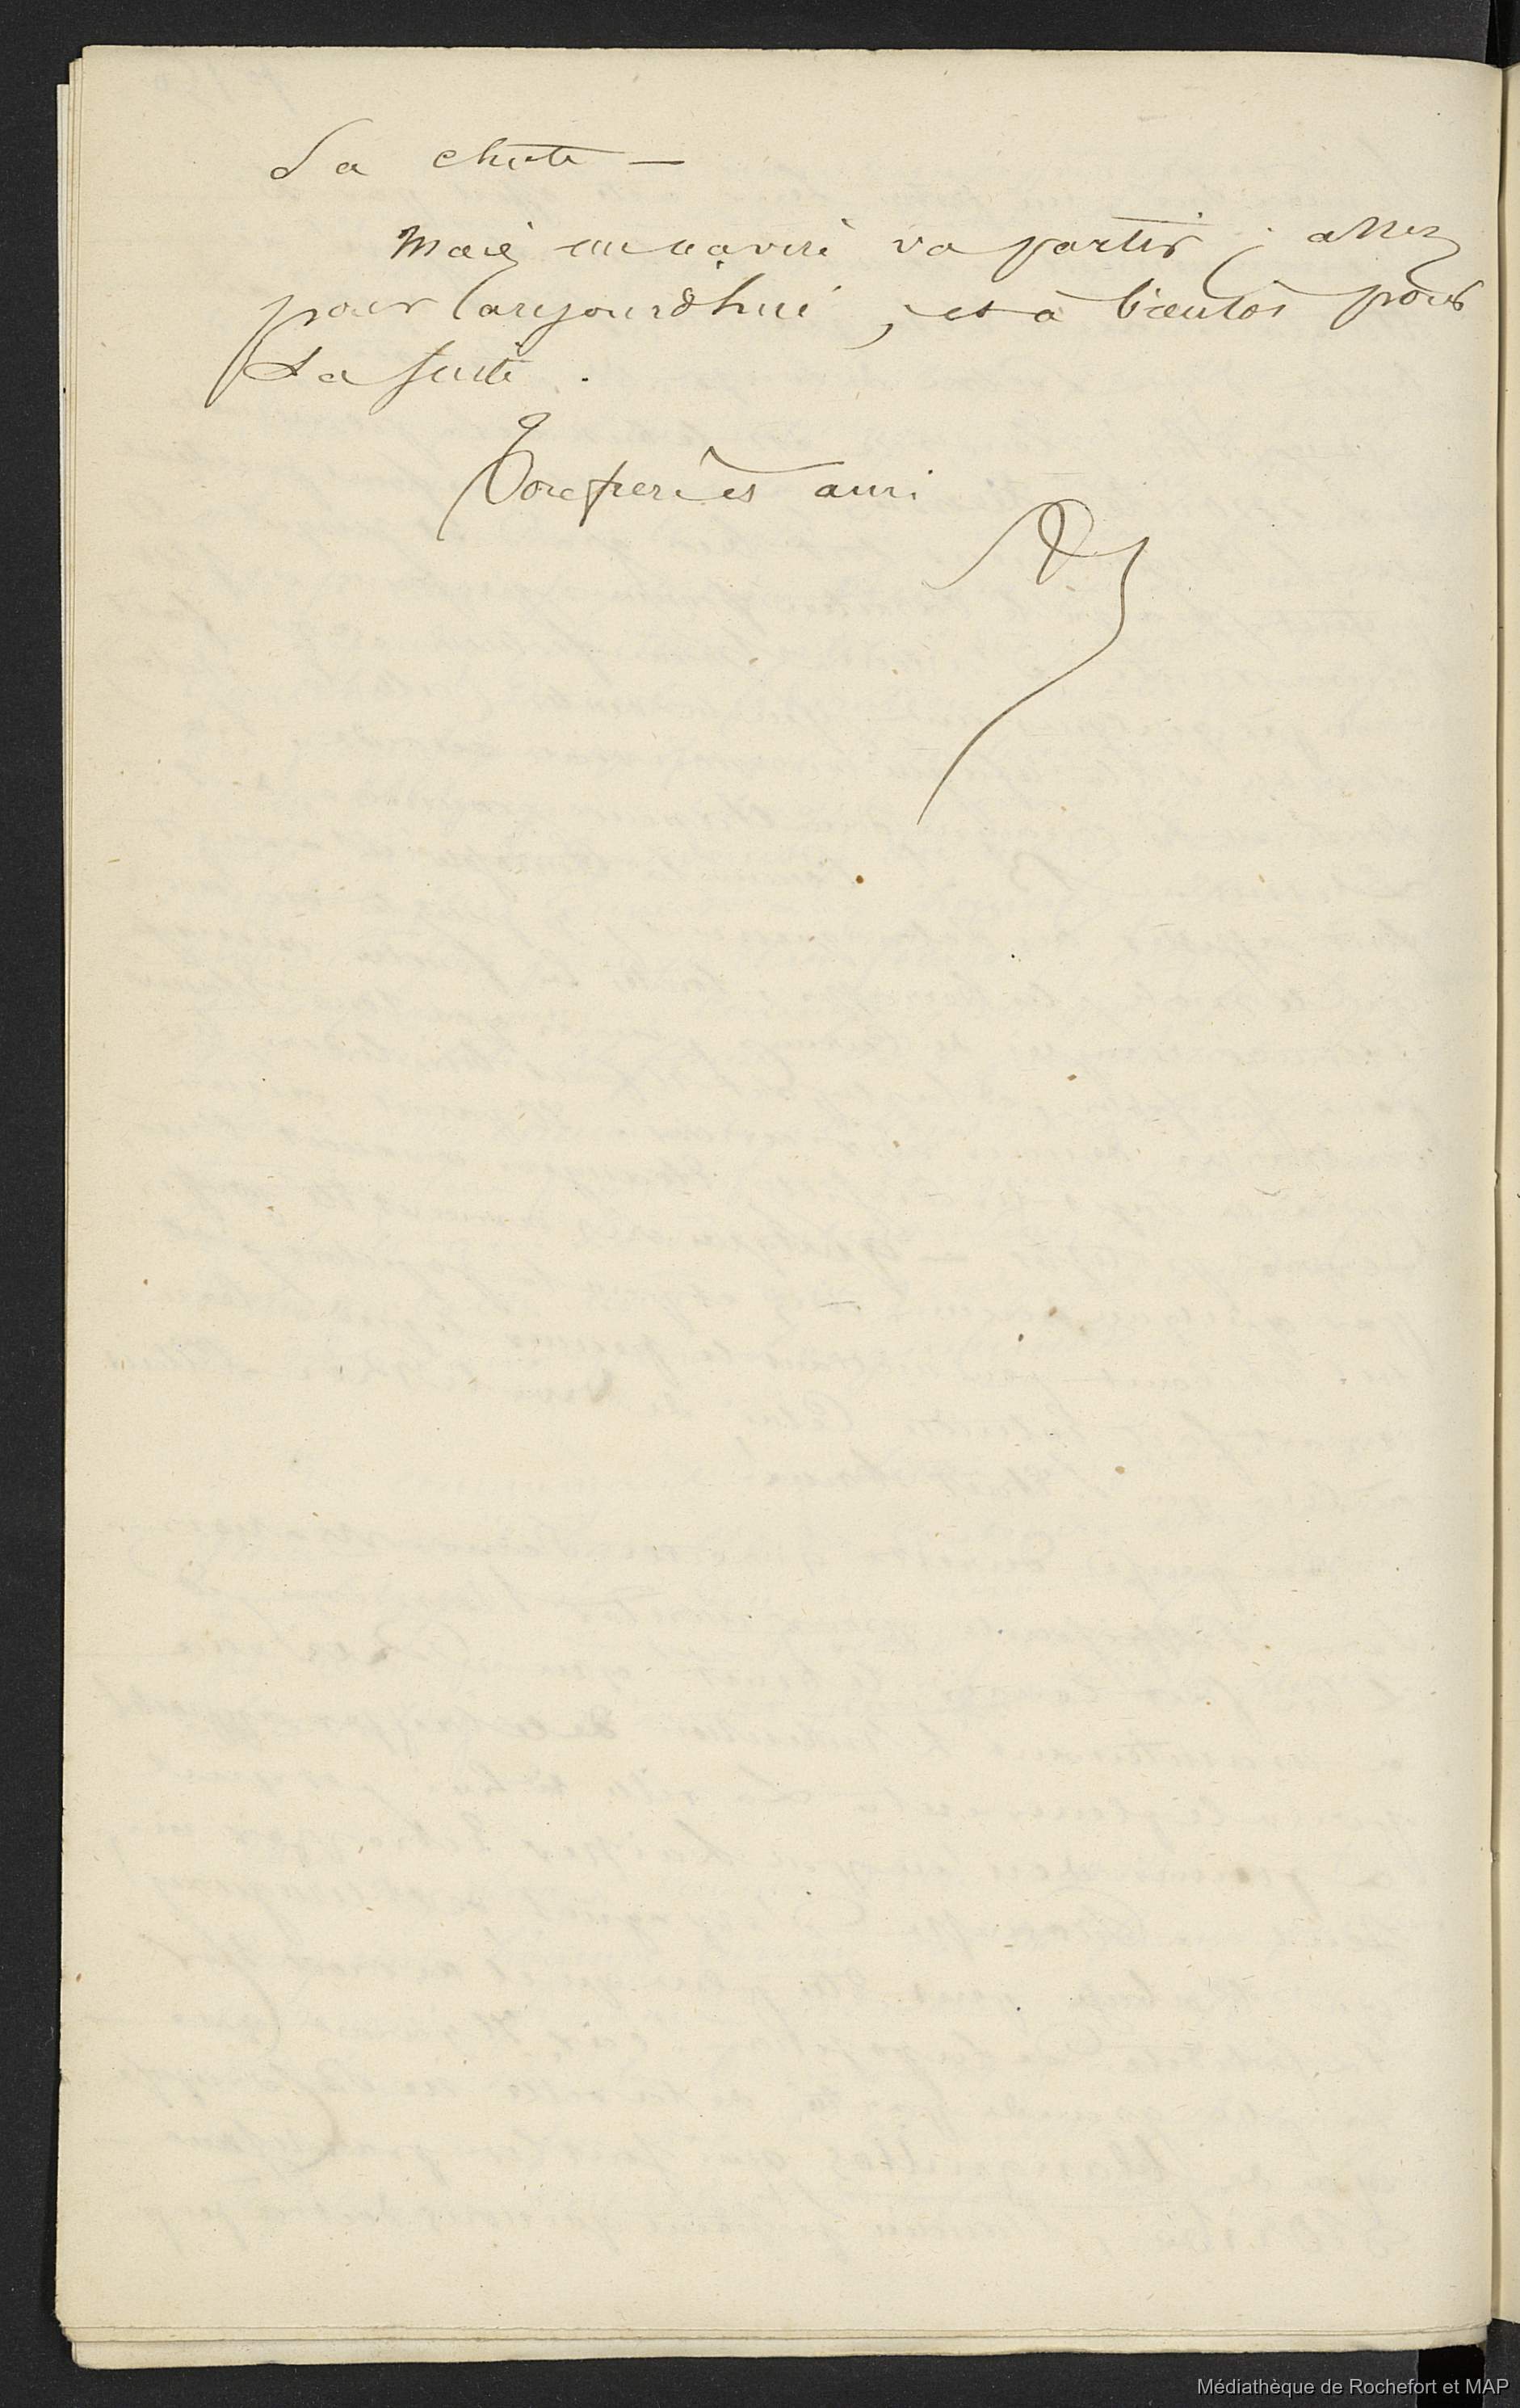 La chute —
Mais un navire va partir ; assez
pour aujourd'hui, et à bientôt pour
la suite.
Ton frère et ami
Médiathèque de Rochefort et MAP